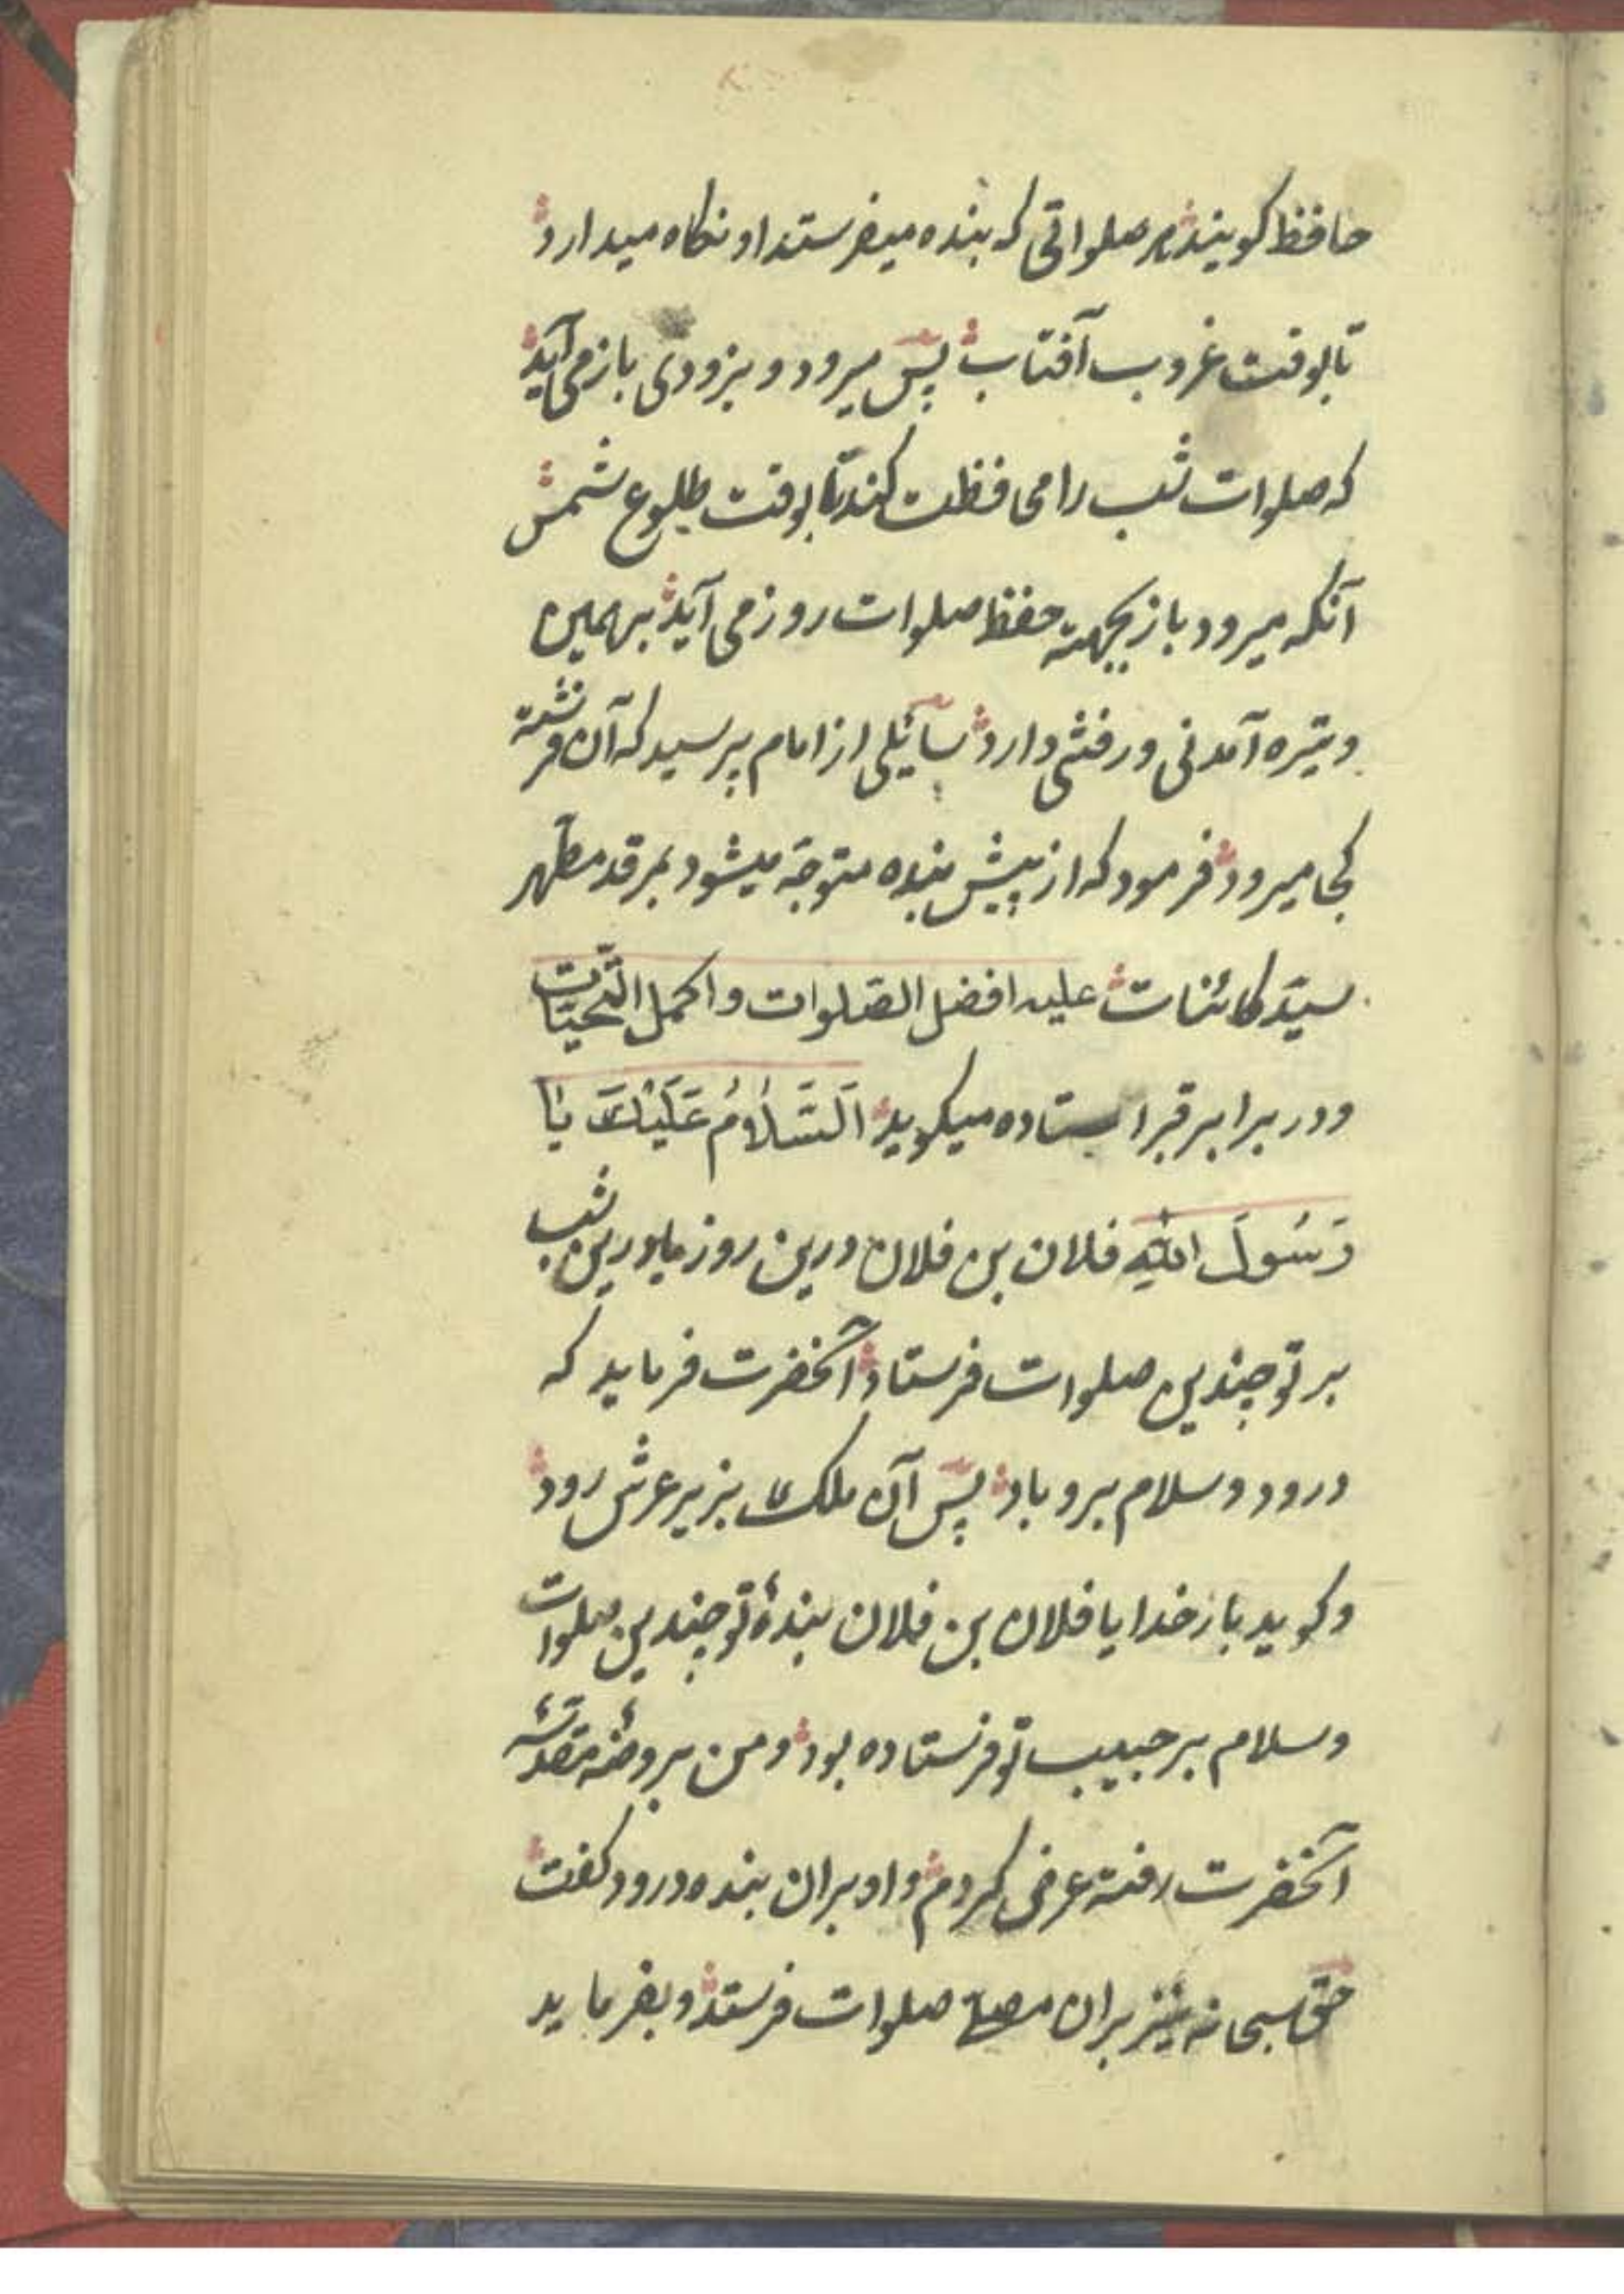 حافظ کویند هر صلواتی که بنده میفرستد او نکاه میدارد
تا بوقت غروب آفتاب پس میرود و بزودی باز می آید
که صلوات شب را محافظت کند تا بوقت طلوع شمس
آنکه میرود باز بجهته حفظ صلوات روز می آید بهمین
وتیره آمدنی و رفتنی دارد سائیلی از امام پرسید که آن فرشته
کجا میرود فرمود که از پیش بنده متوجّه میشود بمرقد مطهر
سیّد کائنات علیه افضل الصّلوات و اکمل التّحیّات
و در برابر قبر استاده میکوید اَلسَّلَامُ عَلَیْكَ یَا
رَسُولَ اللّٰهِ فلان بن فلان درین روز یا درین شب
بر تو چندین صلوات فرستاد آنحضرت فرماید که
درود و سلام برو باد پس آن ملک بزیر عرش رود
و کوید بار خدایا فلان بن فلان بندۀ تو چندین صلوات
و سلام بر حبیب تو فرستاده بود و من بروضۀ مقدسۀ
آنحضرت رفته عرض کردم و او بران بنده درود کفت
حق سبحانه نیز بران صلوات فرستد و بفرماید